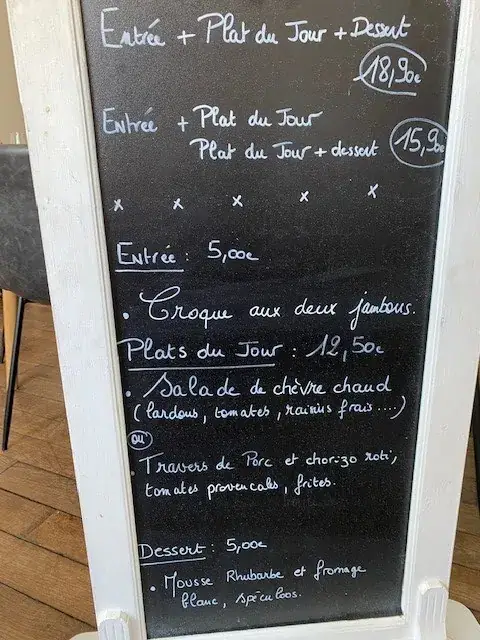 Entrée + Plat du Jour + Dessert
18,90€
Entrée + Plat du Jour
Plat du Jour + dessert 15,90€
x x x x x
Entrée : 5,00€
• Croque aux deux jambons.
Plats du Jour : 12,50€
• Salade de chèvre chaud
(lardons, tomates, raisins frais....)
ou
• Travers de Porc et chorizo roti,
tomates provencales, frites.
Dessert : 5,00€
• Mousse Rhubarbe et fromage
blanc, spéculoos.